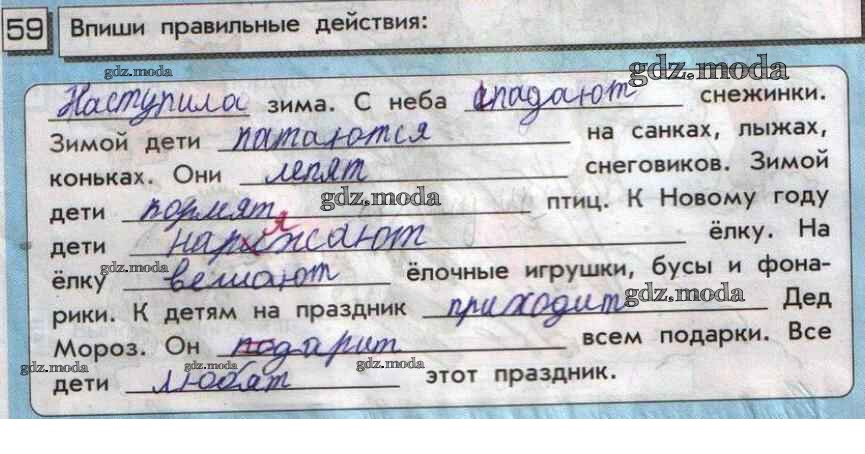 59 Впиши правильные действия:
gdz.moda gdz.moda
Наступила зима. С неба спадают снежинки.
Зимой дети катаются на санках, лыжах,
коньках. Они лепят снеговиков. Зимой
gdz.moda
дети кормят птиц. К Новому году
дети наряжают ёлку. На
gdz.moda
ёлку вешают ёлочные игрушки, бусы и фона-
gdz.moda
рики. К детям на праздник приходит Дед
Мороз. Он подарит всем подарки. Все
gdz.moda gdz.moda gdz.moda
дети любят этот праздник.
gdz.moda